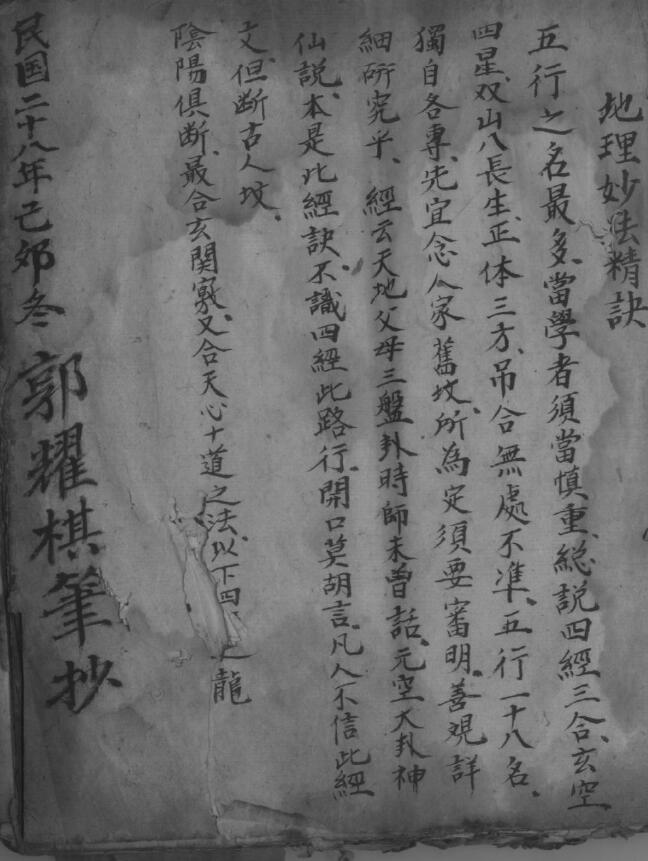 地理妙法精訣
五行之名最多、當學者須當慎重、総説四經三合、玄空
四星、双山八長生、正体三方、吊合無處不準、五行一十八名、
獨自各專、先宜念人家舊坟、所為定須要審明、善观詳
細研究乎、經云天地父母三盤卦時師未曾話、元空大卦神
仙説、本是此經訣、不識四經此路行、開口莫胡言、凡人不信此經
文、但断古人坟、
陰陽俱断、最合玄関竅、又合天心十道之法、以下四 之龍
民国二十八年己卯冬 郭耀棋筆抄